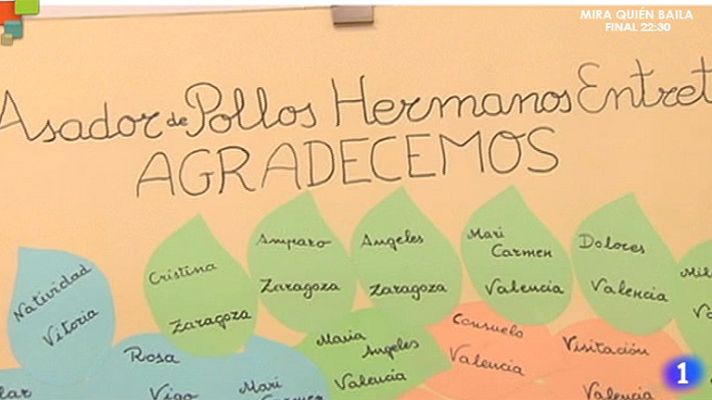 MIRA QUIÉN BAILA
FINAL 22:30
Asador de Pollos Hermanos Entret
AGRADECEMOS
Natividad
Vitoria
Cristina
Zaragoza
Amparo
Zaragoza
Angeles
Zaragoza
Mari
Carmen
Valencia
Dolores
Valencia
Mil
Va
Rosa
Vigo
Mari
Carmen
Maria
Angeles
Valencia
Consuelo
Valencia
Visitación
Valencia
lar
1